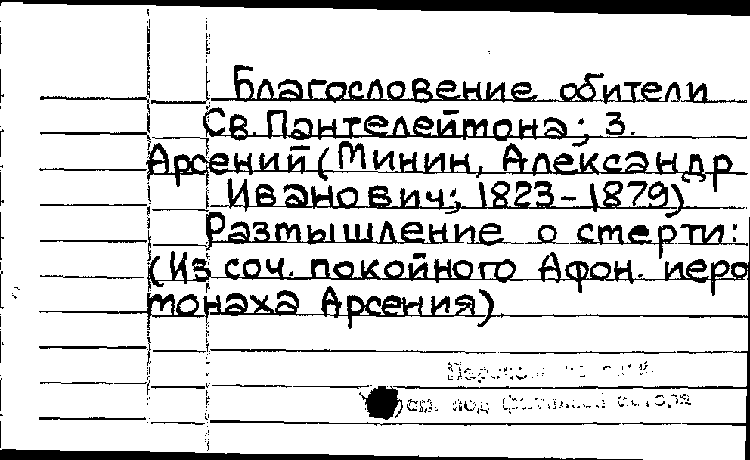 Благословение обители
Св. Пантелеймона; 3.
Арсений (Минин, Александр
Иванович; 1823-1879)
Размышление о смерти:
(Из соч. покойного Афон. иеро
монаха Арсения)
под фамилией автора